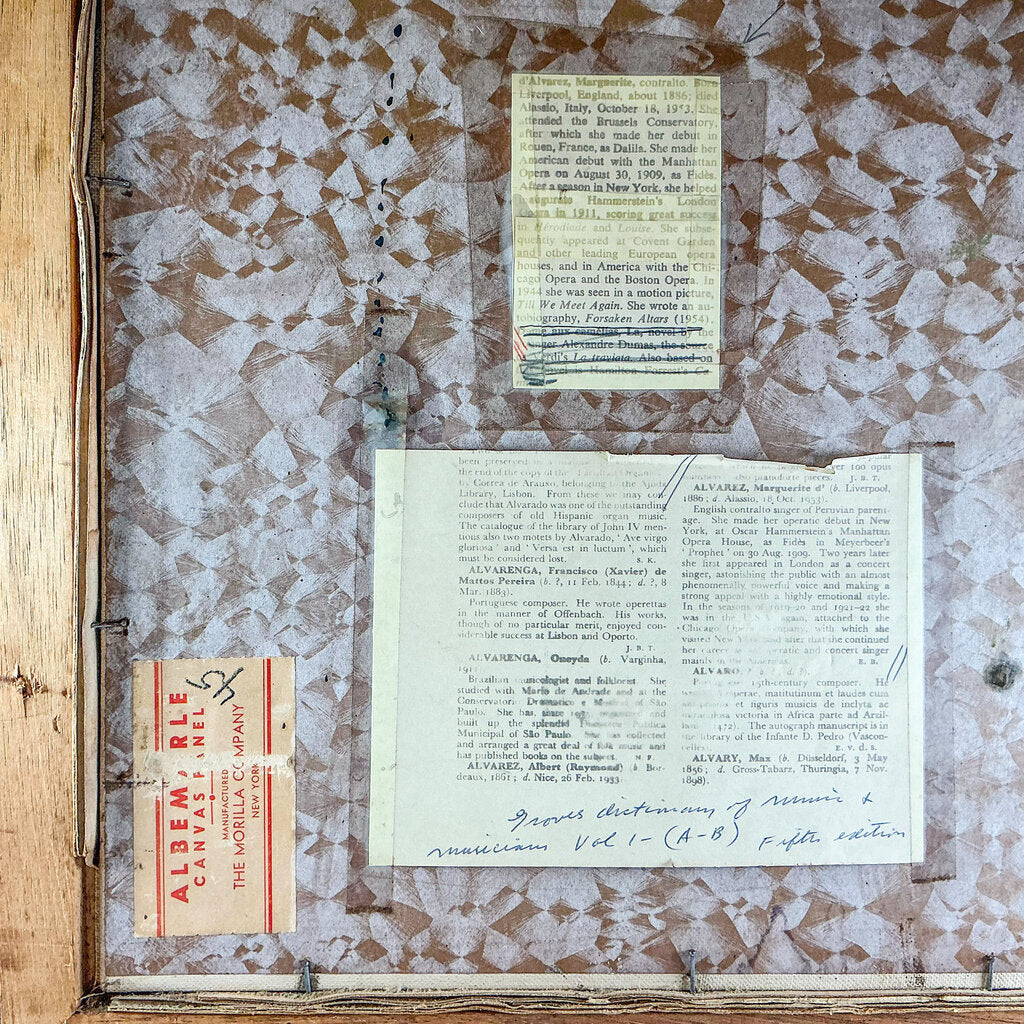 d'Alvarez, Marguerite, contralto. Born
Liverpool, England, about 1886; died
Alassio, Italy, October 18, 1953. She
attended the Brussels Conservatory,
after which she made her debut in
Rouen, France, as Dalila. She made her
American debut with the Manhattan
Opera on August 30, 1909, as Fidès.
After a season in New York, she helped
augurate Hammerstein's London
Opera in 1911, scoring great success
in Hérodiade and Louise. She subse-
quently appeared at Covent Garden
and other leading European opera
houses, and in America with the Chi-
cago Opera and the Boston Opera. In
1944 she was seen in a motion picture,
Till We Meet Again. She wrote an au-
tobiography, Forsaken Altars (1954).
ame aux camélias, La, novel by the
unger Alexandre Dumas, the source
rdi's La traviata. Also based on
Hamilton Forrest's Ca
been preserved in a
the end of the copy of the
by Correa de Arauxo, belonging to the Ajuda
Library, Lisbon. From these we may con-
clude that Alvarado was one of the outstanding
composers of old Hispanic organ music.
The catalogue of the library of John IV men-
tions also two motets by Alvarado, 'Ave virgo
gloriosa' and 'Versa est in luctum', which
must be considered lost. S. K.
ALVARENGA, Francisco (Xavier) de
Mattos Pereira (b. ?, 11 Feb. 1844; d. ?, 8
Mar. 1883).
Portuguese composer. He wrote operettas
in the manner of Offenbach. His works,
though of no particular merit, enjoyed con-
siderable success at Lisbon and Oporto.
J. B. T.
ALVARENGA, Oneyda (b. Varginha,
Brazilian musicologist and folklorist. She
studied with Mario de Andrade and at the
Conservatorio Dramatico e Musical of São
Paulo. She has, since organized and
built up the splendid Discoteca Publica
Municipal of São Paulo. She has collected
and arranged a great deal of folk music and
has published books on the subject.
ALVAREZ, Albert (Raymond) (b. Bor-
deaux, 1861; d. Nice, 26 Feb. 1933
ver 100 opus
numbers also pianoforte pieces. J. B. T.
ALVAREZ, Marguerite d' (b. Liverpool,
1886; d. Alassio, 18 Oct. 1953).
English contralto singer of Peruvian parent-
age. She made her operatic debut in New
York, at Oscar Hammerstein's Manhattan
Opera House, as Fidès in Meyerbeer's
'Prophet' on 30 Aug. 1909. Two years later
she first appeared in London as a concert
singer, astonishing the public with an almost
phenomenally powerful voice and making a
strong appeal with a highly emotional style.
In the seasons of 1919-20 and 1921-22 she
was in the U.S.A. again, attached to the
Chicago Opera Company, with which she
visited New York and after that she continued
her career as operatic and concert singer
mainly in the Americas. E. B.
ALVARO, (b. ?; d. ?).
15th-century composer. He
matitutinum et laudes cum
et figuris musicis de inclyta ac
miraculosa victoria in Africa parte ad Arzil-
1472). The autograph manuscript is in
the library of the Infante D. Pedro (Vascon-
cellos). E. v. d. S.
ALVARY, Max (b. Düsseldorf, 3 May
1856; d. Gross-Tabarz, Thuringia, 7 Nov.
1898).
Groves dictionary of Music &
musicians Vol 1- (A-B) Fifth edition
ALBEMARLE
CANVAS PANEL
MANUFACTURED
THE MORILLA COMPANY
NEW YORK